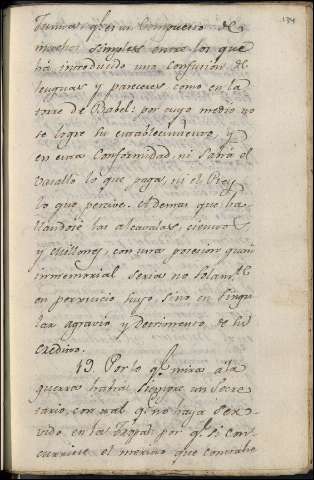 134
muchos simples entre los que
há introducido una confusion de
lenguas y pareceres como en la
torre de Babel: por cuyo medio no
se logre su establecimiento, y
en esta conformidad, ni sabrá el
Vasallo lo que paga, ni el Rey
lo que percive. Ademas que ha
llandose las alcavalas, cientos
y Millones, con una posesion quasi
inmemorial seria no solam.te
en perjuicio suyo, sino en singu
lar agravio y Detrimento de su
credito.
19. Por lo q.e mira a la
guerra habrá siempre un Secre
tario, con tal q.e no haya ser-
vido en las Tropas: por q.e si con-
curriese el merito que contrahe